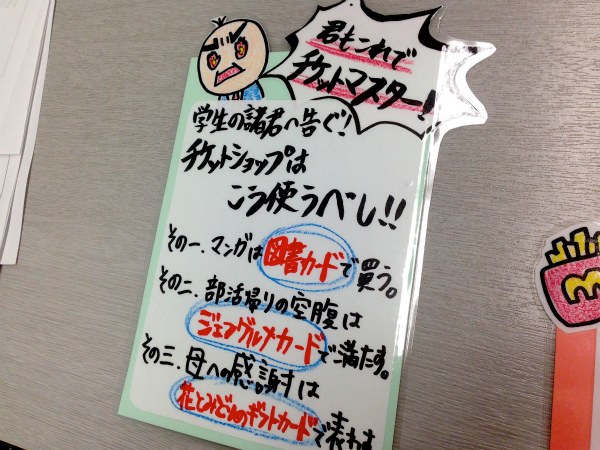 君もこれで
チケットマスター!
学生の諸君へ告ぐ!
チケットショップは
こう使うべし!!
その一、マンガは図書カードで買う。
その二、部活帰りの空腹は
ジェフグルメカードで満たす。
その三、母への感謝は
花とみどりのギフトカードで表わす
M